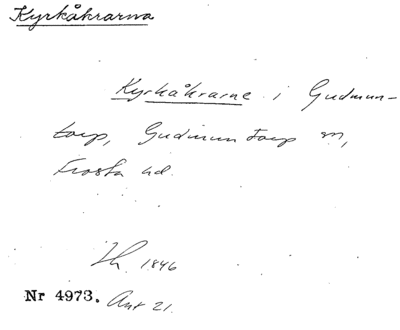 Kyrkåkrarna
Kyrkåkrarne i Gudmun-
torp, Gudmuntorp sn,
Frosta hd.
1846
Nr 4973. Ant 21.